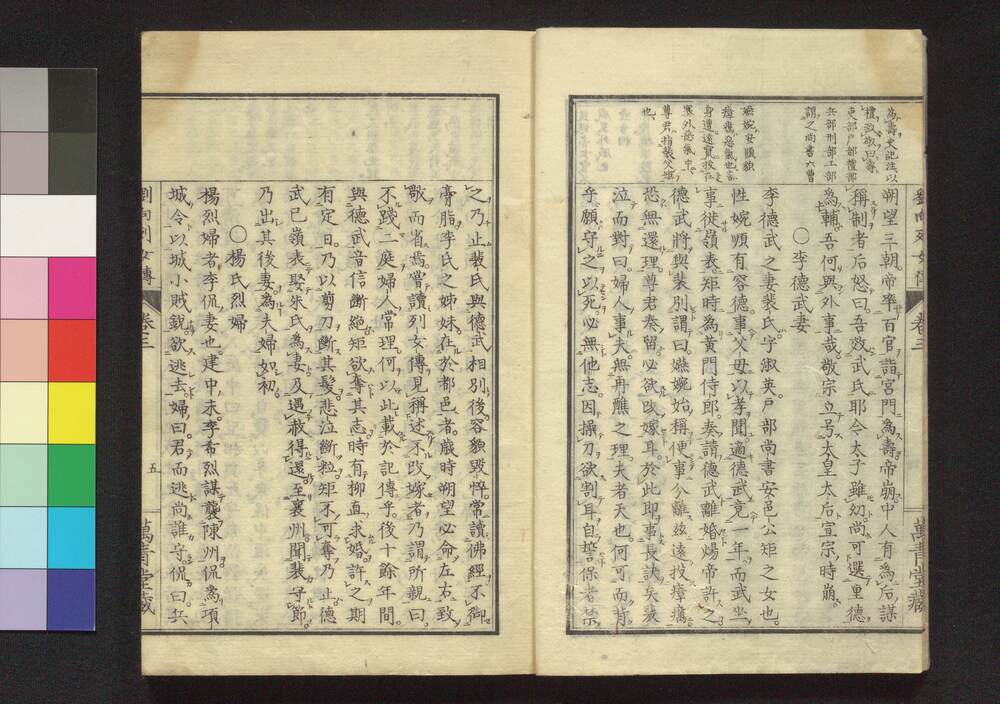 為壽史記注以
禮敬敬曰壽
吏部戶部禮部
兵部刑部工部
謂之尚書六曹
嬿婉安順貌
瘴癘惡氣也言
身遭遠竄投在
塞外惡氣中
尊君指裴父矩
也
朔望三朝帝率百官詣宮門為壽帝崩中人有為后謀
稱制者后怒曰吾效武氏耶今太子雖幼尚可選重德
為輔吾何與外事哉敬宗立号太皇太后宣宗時崩
〇李德武妻
李德武之妻裴氏字淑英戶部尚書安邑公矩之女也
性婉順有容德事父母以孝聞適德武竟一年而武坐
事徙嶺表矩時為黃門侍郎奏請德武離婚煬帝許之
德武將與裴別謂曰嬿婉始稱便事分離玆遠投瘴癘
恐無還理尊君奏留必欲改嫁耳於此即事長訣矣裴
泣而對曰婦人事夫無再醮之理夫者天也何可而背
乎願守之以死必無他志因操刀欲割耳自誓保者禁
劉向列女傳
卷三
之乃止裴氏與德武相別後容貌毀悴常讀佛經不御
膏脂李氏之姊妹在於都邑者歲時朔望必命左右致
敬而省焉嘗讀列女傳見稱述不改嫁者乃謂所親曰
不踐二庭婦人常理何以此載於記傳乎後十餘年間
與德武音信斷絕矩欲奪其志時有柳直求婚許之期
有定日乃以剪刀斷其髮悲泣斷粒矩不可奪乃止德
武已嶺表娶朱氏為妻及遇赦得還至襄州聞裴守節
乃出其後妻為夫婦如初
〇楊氏烈婦
楊烈婦者李侃妻也建中末李希烈謀襲陳州侃為項
城令以城小賊銳欲逃去婦曰君而逃尚誰守侃曰兵
劉向列女傳
卷三
五
萬青堂藏